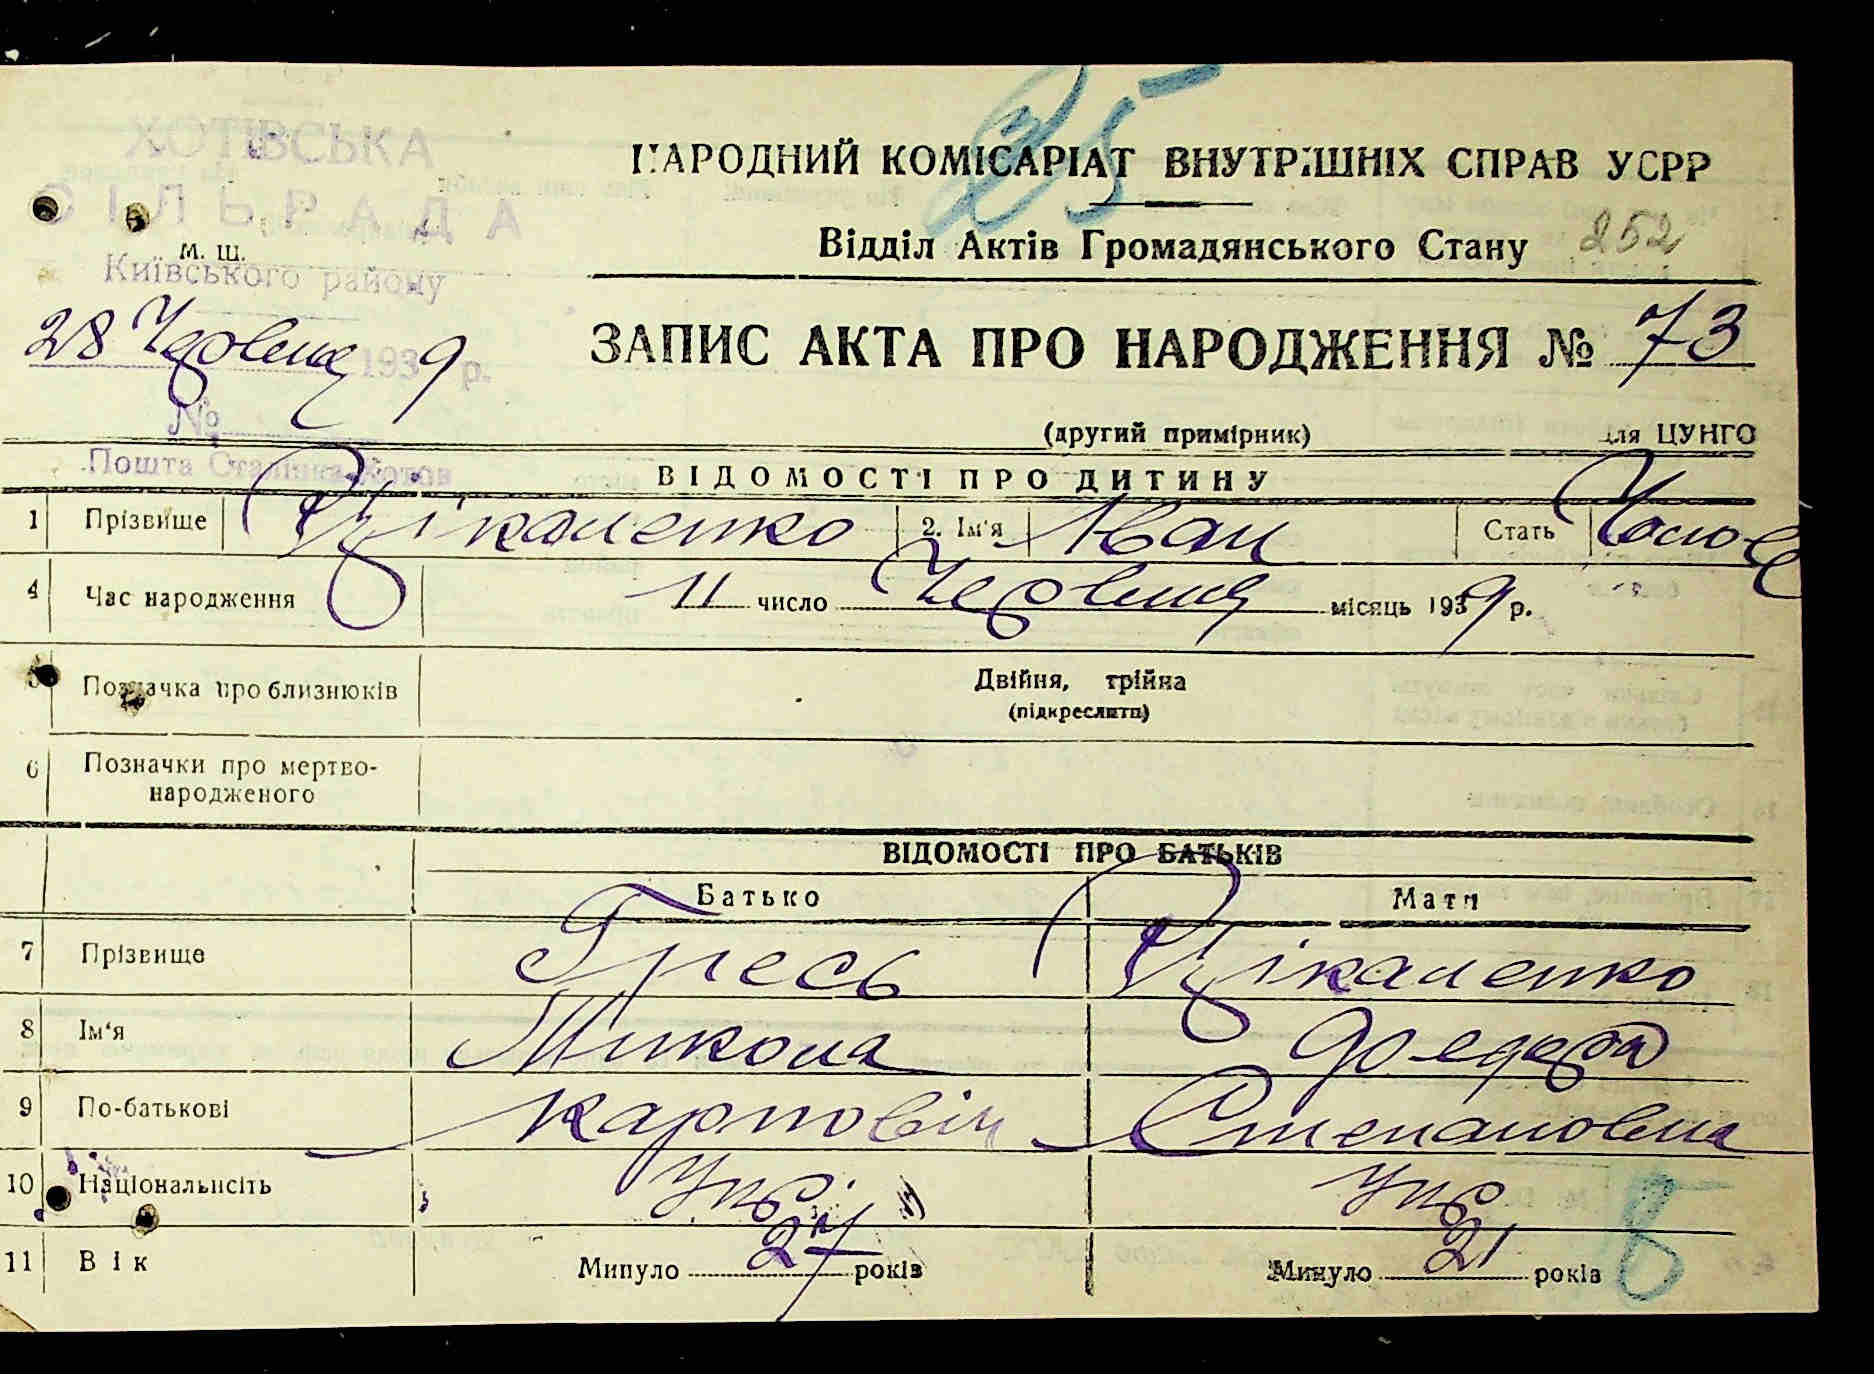 25
ХОТІВСЬКА
СІЛЬРАДА
М. Ш.
Київського району
28 Червня 1939 р.
№
Пошта Сталінка-Хотов
НАРОДНИЙ КОМІСАРІАТ ВНУТРІШНІХ СПРАВ УСРР
Відділ Актів Громадянського Стану 252
ЗАПИС АКТА ПРО НАРОДЖЕННЯ № 73
(другий примірник) для ЦУНГО
ВІДОМОСТІ ПРО ДИТИНУ
1 Прізвище Цікаленко 2. Ім'я Іван Стать
4 Час народження 11 число Червня місяць 1939 р.
5 Позначка про близнюків Двійня, трійна
(підкреслити)
6 Позначки про мертво-
народженого
ВІДОМОСТІ ПРО БАТЬКІВ
Батько Мати
7 Прізвище Гресь Цікаленко
8 Ім'я Микола
9 По-батькові Карповіч Степановна
10 Національність Укр. Укр
11 Вік Минуло 27 років Минуло 21 років